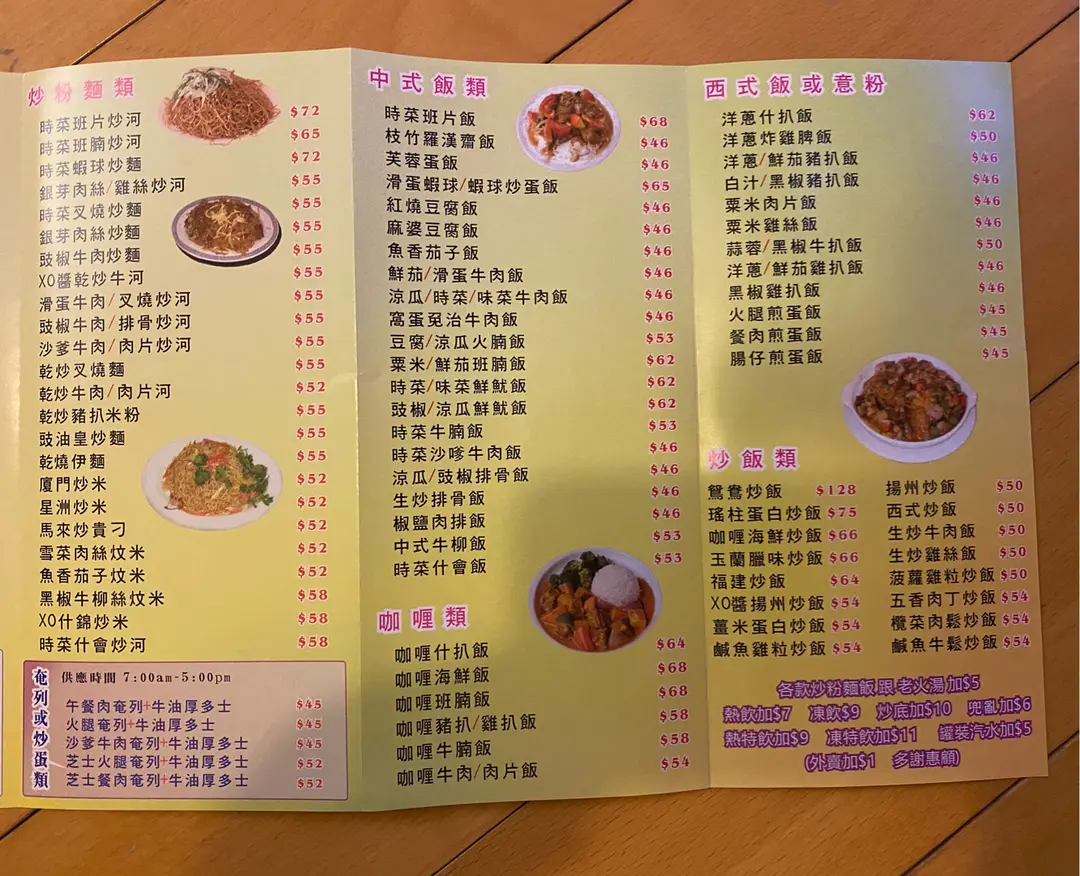 炒粉麵類
時菜班片炒河 $72
時菜班腩炒河 $65
時菜蝦球炒麵 $72
銀芽肉絲/雞絲炒河 $55
時菜叉燒炒麵 $55
銀芽肉絲炒麵 $55
豉椒牛肉炒麵 $55
XO醬乾炒牛河 $55
滑蛋牛肉/叉燒炒河 $55
豉椒牛肉/排骨炒河 $55
沙爹牛肉/肉片炒河 $55
乾炒叉燒麵 $55
乾炒牛肉/肉片河 $52
乾炒豬扒米粉 $55
豉油皇炒麵 $55
乾燒伊麵 $55
廈門炒米 $52
星洲炒米 $52
馬來炒貴刁 $52
雪菜肉絲炆米 $52
魚香茄子炆米 $52
黑椒牛柳絲炆米 $58
XO什錦炒米 $58
時菜什會炒河 $58
奄列或炒蛋類
供應時間 7:00am-5:00pm
午餐肉奄列+牛油厚多士 $45
火腿奄列+牛油厚多士 $45
沙爹牛肉奄列+牛油厚多士 $45
芝士火腿奄列+牛油厚多士 $52
芝士餐肉奄列+牛油厚多士 $52
中式飯類
時菜班片飯 $68
枝竹羅漢齋飯 $46
芙蓉蛋飯 $46
滑蛋蝦球/蝦球炒蛋飯 $65
紅燒豆腐飯 $46
麻婆豆腐飯 $46
魚香茄子飯 $46
鮮茄/滑蛋牛肉飯 $46
涼瓜/時菜/味菜牛肉飯 $46
窩蛋免治牛肉飯 $46
豆腐/涼瓜火腩飯 $53
粟米/鮮茄班腩飯 $62
時菜/味菜鮮魷飯 $62
豉椒/涼瓜鮮魷飯 $62
時菜牛腩飯 $53
時菜沙嗲牛肉飯 $46
涼瓜/豉椒排骨飯 $46
生炒排骨飯 $46
椒鹽肉排飯 $46
中式牛柳飯 $53
時菜什會飯 $53
咖喱類
咖喱什扒飯 $64
咖喱海鮮飯 $68
咖喱班腩飯 $68
咖喱豬扒/雞扒飯 $58
咖喱牛腩飯 $58
咖喱牛肉/肉片飯 $54
西式飯或意粉
洋蔥什扒飯 $62
洋蔥炸雞脾飯 $50
洋蔥/鮮茄豬扒飯 $46
白汁/黑椒豬扒飯 $46
粟米肉片飯 $46
粟米雞絲飯 $46
蒜蓉/黑椒牛扒飯 $50
洋蔥/鮮茄雞扒飯 $46
黑椒雞扒飯 $46
火腿煎蛋飯 $45
餐肉煎蛋飯 $45
腸仔煎蛋飯 $45
炒飯類
鴛鴦炒飯 $128
瑤柱蛋白炒飯 $75
咖喱海鮮炒飯 $66
玉蘭臘味炒飯 $66
福建炒飯 $64
XO醬揚州炒飯 $54
薑米蛋白炒飯 $54
鹹魚雞粒炒飯 $54
揚州炒飯 $50
西式炒飯 $50
生炒牛肉飯 $50
生炒雞絲飯 $50
菠蘿雞粒炒飯 $50
五香肉丁炒飯 $54
欖菜肉鬆炒飯 $54
鹹魚牛鬆炒飯 $54
各款炒粉麵飯 跟 老火湯 加$5
熱飲加$7 凍飲$9 炒底加$10 兜亂加$6
熱特飲加$9 凍特飲加$11 罐裝汽水加$5
(外賣加$1 多謝惠顧)